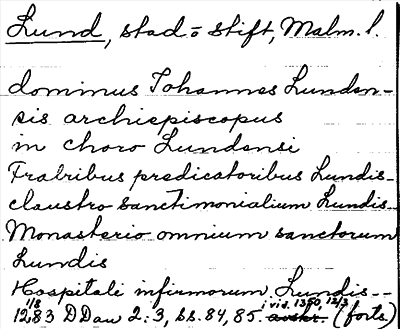 Lund, stad o stift, Malm. l.
dominus Johannes Lunden-
sis archiepiscopus
in choro Lundensi
Fratribus predicatoribus Lundis-
claustro sanctimonialium Lundis-
Monasterio omnium sanctorum
Lundis
Hospitali infirmorum Lundis--
1/8 i vid. 1350, 12/3
1283 DDan 2:3, ss. 84, 85. avskr. (forts)